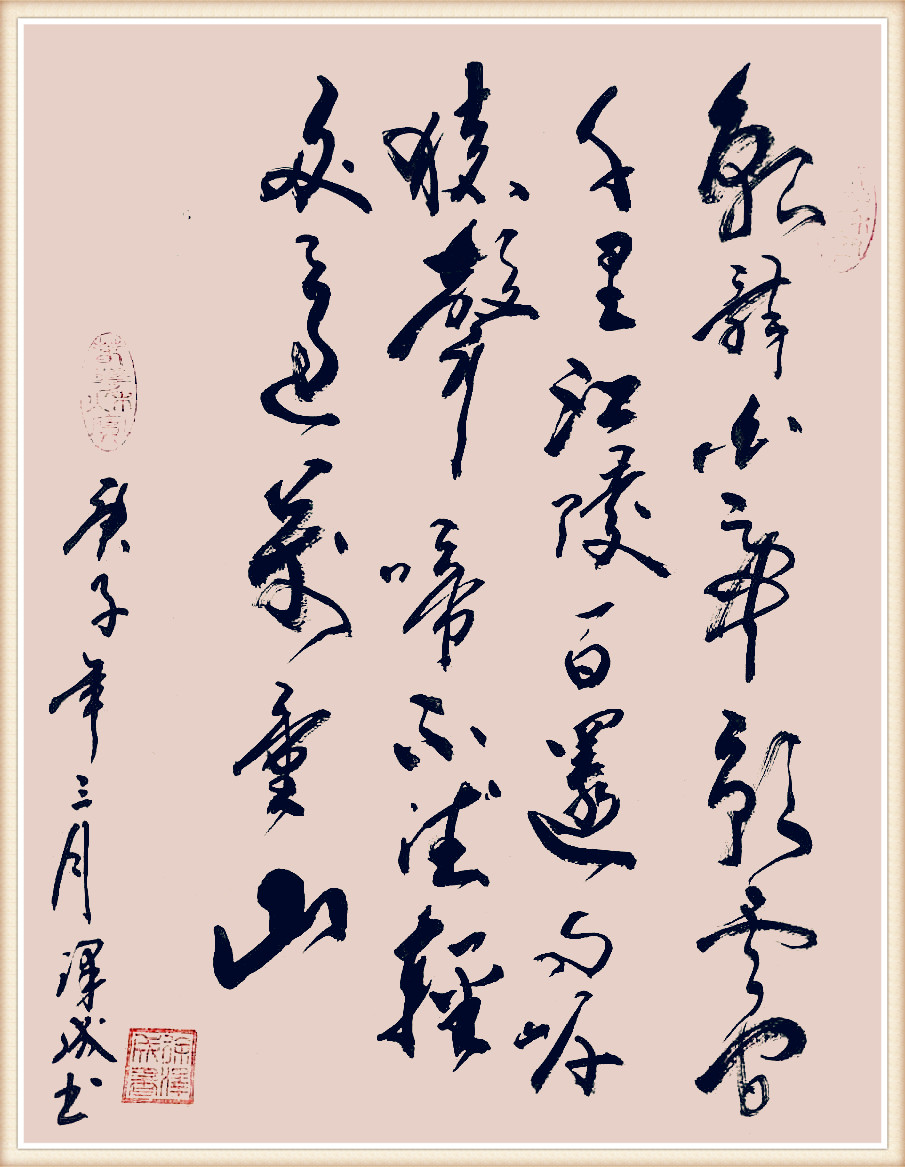 朝辭白帝彩雲間
千里江陵一日還兩岸
猿聲啼不住輕
舟已過萬重山
庚子年三月澤成书